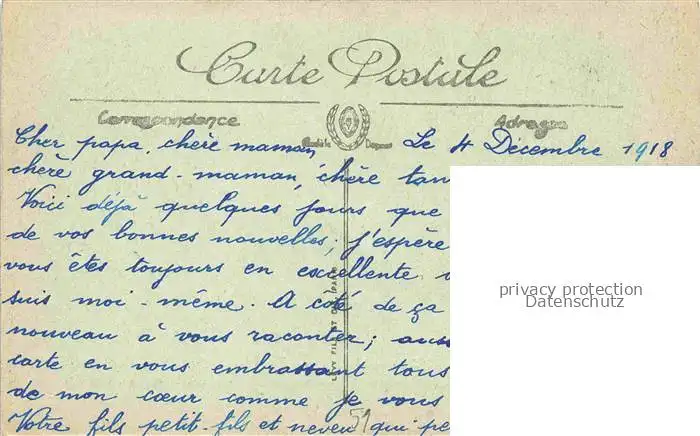 Carte Postale
Correspondance
Adresse
Cher papa, chère maman,
Le 4 Décembre 1918
chère grand-maman, chère tan
Voici déjà quelques jours que
de vos bonnes nouvelles; j'espère
vous êtes toujours en excellente
suis moi-même. A coté de ça
nouveau à vous raconter; auss
carte en vous embrassant tous
de mon cœur comme je vous
Votre fils petit-fils et neveu qui pe
privacy protection
Datenschutz
59